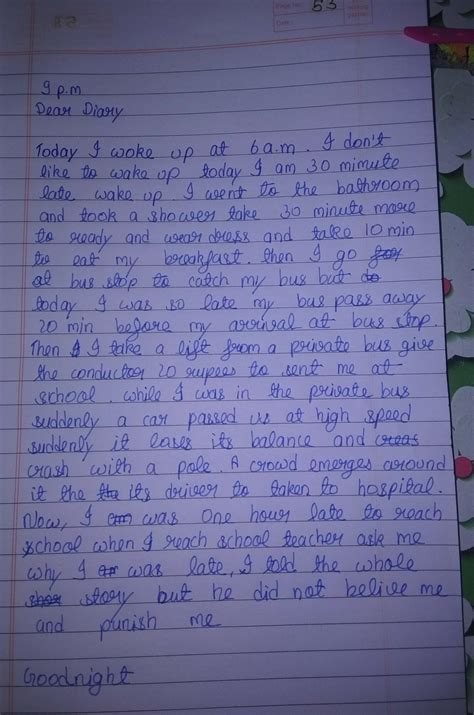 Page No. 53
Date:
9 p.m
Dear Diary
Today I woke up at 6 a.m. I don't
like to wake up today I am 30 minute
late wake up. I went to the bathroom
and took a shower take 30 minute more
to ready and wear dress and take 10 min
to eat my breakfast. then I go for
at bus stop to catch my bus but do
today I was so late my bus pass away
20 min before my arrival at bus stop.
Then I take a lift from a private bus give
the conductor 20 rupees to sent me at
school. while I was in the private bus
suddenly a car passed us at high speed
suddenly it loses its balance and creas
crash with a pole. A crowd emerges around
it the the its driver to taken to hospital.
Now, I am was one hour late to reach
school when I reach school teacher ask me
why I was late, I told the whole
story but he did not belive me
and punish me
Goodnight